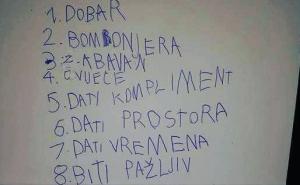 1. DOBAR
2. BOMBONJERA
3. ZABAVAN
4. CVIJEĆE
5. DATI KOMPLIMENT
6. DATI PROSTORA
7 DATI VREMENA
8. BITI PAŽLJIV